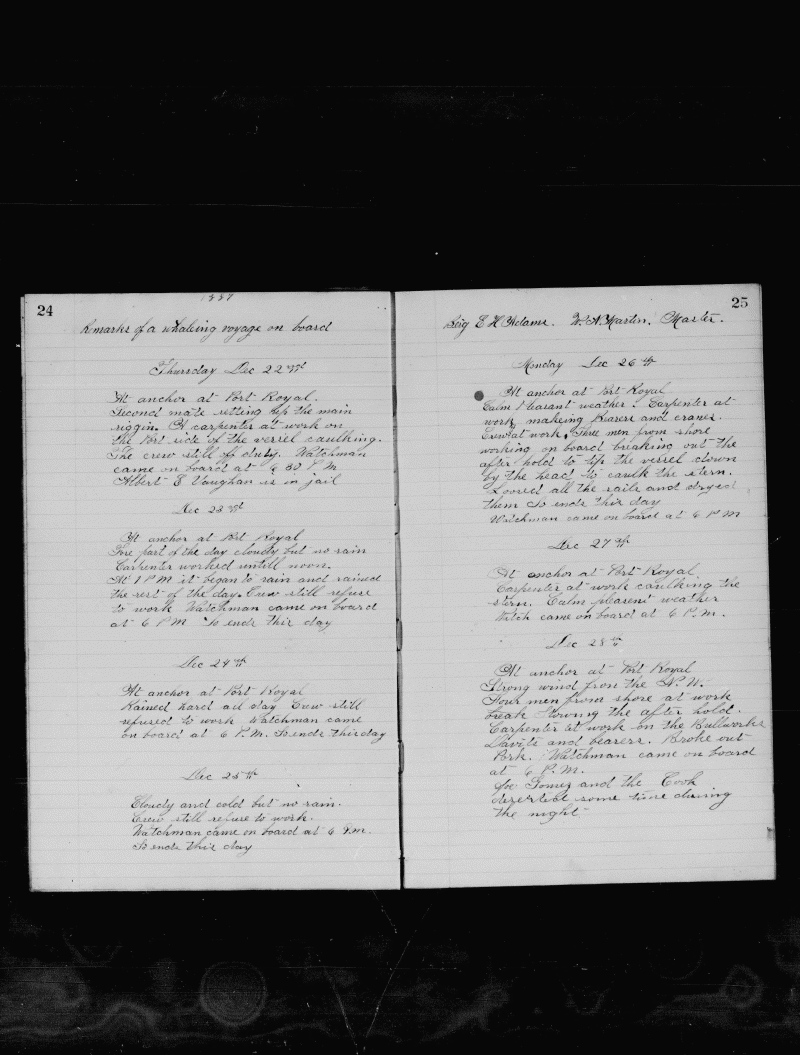 24
1887
Remarks of a whaleing voyage on board
Thursday Dec 22nd
At anchor at Port Royal.
Second mate setting up the main
riggin. A carpenter at work on
the Port side of the vessel caulking.
The crew still off duty. Watchman
came on board at 6 30 P M
Albert E Vaughan is in jail
Dec 23rd
At anchor at Port Royal
Fore part of the day cloudy but no rain
Carpenter worked untill noon.
At 1 P M it began to rain and rained
the rest of the day. Crew still refuse
to work Watchman came on board
at 6 P M So ends this day
Dec 24th
At anchor at Port Royal
Rained hard all day Crew still
refused to work Watchman came
on board at 6 P. M. So ends this day
Dec 25th
Cloudy and cold but no rain.
Crew still refuse to work.
Watchman came on board at 6 P.M.
So ends this day
25
Brig E H Adams. Martin, Master.
Monday Dec 26th
At anchor at Port Royal
Calm Pleasant weather. Carpenter at
work making bearers and cranes.
Crew at work, Three men from shore
working on board breaking out the
after hold to tip the vessel down
by the head to caulk the stern.
Loosed all the sails and dryed
them So ends this day
Watchman came on board at 6 P M
Dec 27th
At anchor at Port Royal
Carpenter at work caulking the
stern. Calm pleasent weather
Watch came on board at 6 P. M.
Dec 28th
At anchor at Port Royal
Strong wind from the N. W.
Four men from shore at work
break stowing the after hold.
Carpenter at work on the Bullworks
Davits and bearers. Broke out
Pork. Watchman came on board
at 6 P. M.
Joe Gomez and the Cook
deserted some time during
the night